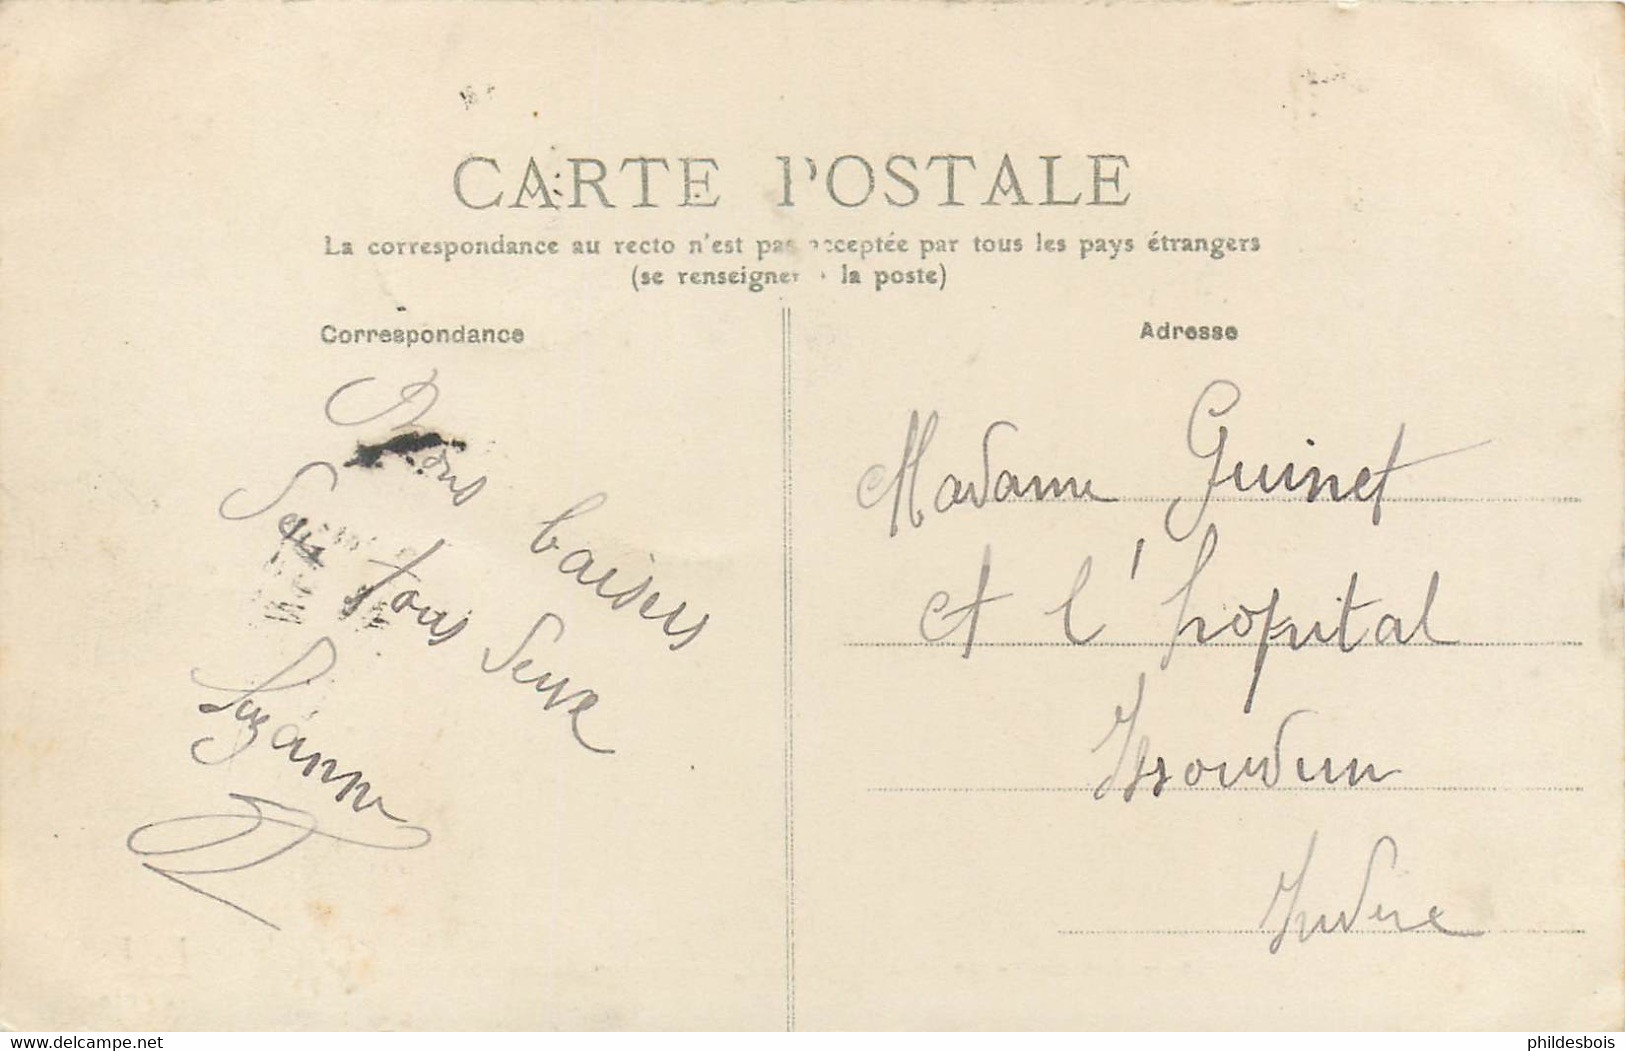 CARTE POSTALE
La correspondance au recto n'est pas acceptée par tous les pays étrangers
(se renseigner à la poste)
Correspondance
Adresse
Bons baisers
tous
Suzanne
Madame Guinet
A l'hopital
Issoudun
Indre
delcampe.net
phildesbois